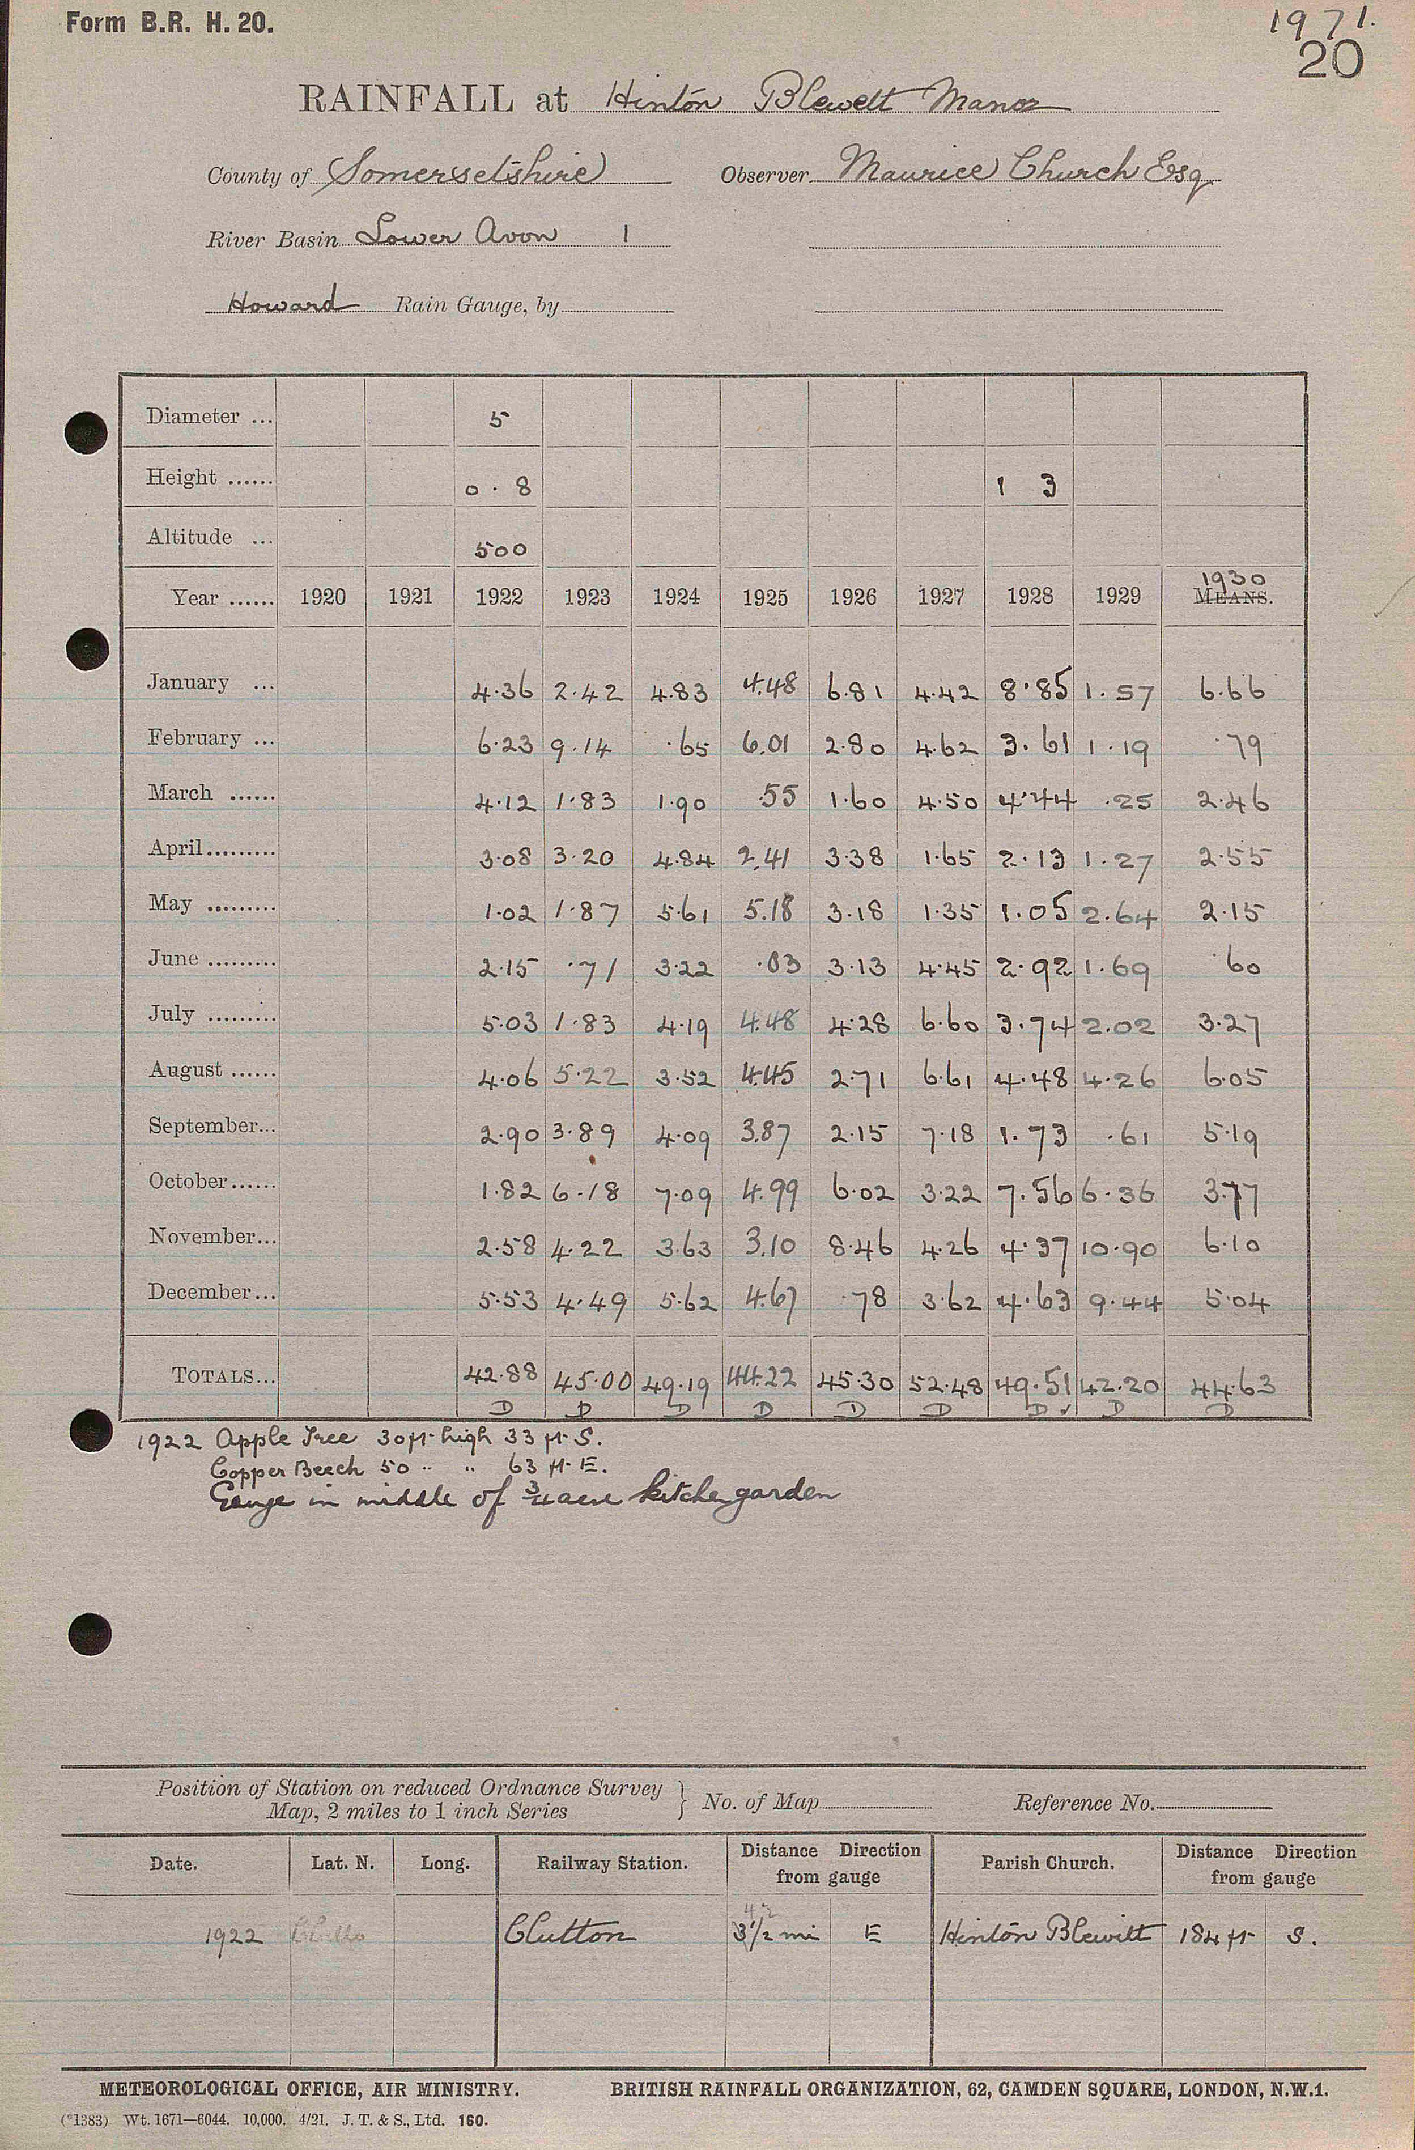 Form B.R. H. 20.
1971.
20
RAINFALL at Hinton Blewett Manor
County of Somersetshire Observer Maurice Church Esq
River Basin Lower Avon 1
Howard Rain Gauge, by
Diameter ... 5
Height ...... 0 . 8 1 3
Altitude ... 500
1930
Year ...... 1920 1921 1922 1923 1924 1925 1926 1927 1928 1929 MEANS.
January ... 4.36 2.42 4.83 4.48 6.81 4.42 8.85 1.57 6.66
February ... 6.23 9.14 .65 6.01 2.80 4.62 3.61 1.19 .79
March ...... 4.12 1.83 1.90 .55 1.60 4.50 4.44 .25 2.46
April......... 3.08 3.20 4.84 2.41 3.38 1.65 2.13 1.27 2.55
May ......... 1.02 1.87 5.61 5.18 3.18 1.35 1.05 2.64 2.15
June ......... 2.15 .71 3.22 .03 3.13 4.45 2.92 1.69 .60
July ......... 5.03 1.83 4.19 4.48 4.28 6.60 3.74 2.02 3.27
August ...... 4.06 5.22 3.52 4.45 2.71 6.61 4.48 4.26 6.05
September... 2.90 3.89 4.09 3.87 2.15 7.18 1.73 .61 5.19
October...... 1.82 6.18 7.09 4.99 6.02 3.22 7.56 6.36 3.77
November... 2.58 4.22 3.63 3.10 8.46 4.26 4.37 10.90 6.10
December... 5.53 4.49 5.62 4.67 .78 3.62 4.63 9.44 5.04
TOTALS... 42.88 45.00 49.19 44.22 45.30 52.48 49.51 42.20 44.63
D D D D D D D ✓ D D
1922 Apple Tree 30 ft. high 33 ft. S.
Copper Beech 50 .. .. 63 ft. E.
Gauge in middle of 3/4 acre kitchen garden
Position of Station on reduced Ordnance Survey
Map, 2 miles to 1 inch Series } No. of Map Reference No.
Date. Lat. N. Long. Railway Station. Distance Direction from gauge Parish Church. Distance Direction from gauge
1922 Clutton 3 1/2 mi E Hinton Blewitt 184 ft S.
METEOROLOGICAL OFFICE, AIR MINISTRY. BRITISH RAINFALL ORGANIZATION, 62, CAMDEN SQUARE, LONDON, N.W.1.
(*1383) Wt. 1671—6044. 10,000. 4/21. J. T. & S., Ltd. 160.